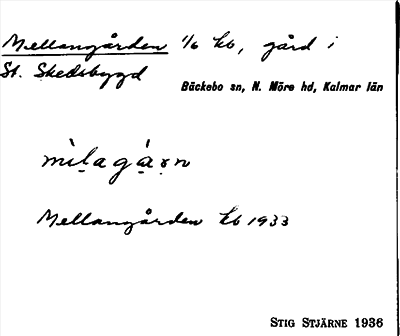 Mellangården 1/6 kb, gård i
St. Skedsbygd
Bäckebo sn, N. Möre hd, Kalmar län
mìlagárn
Mellangården kb 1933
STIG STJÄRNE 1936